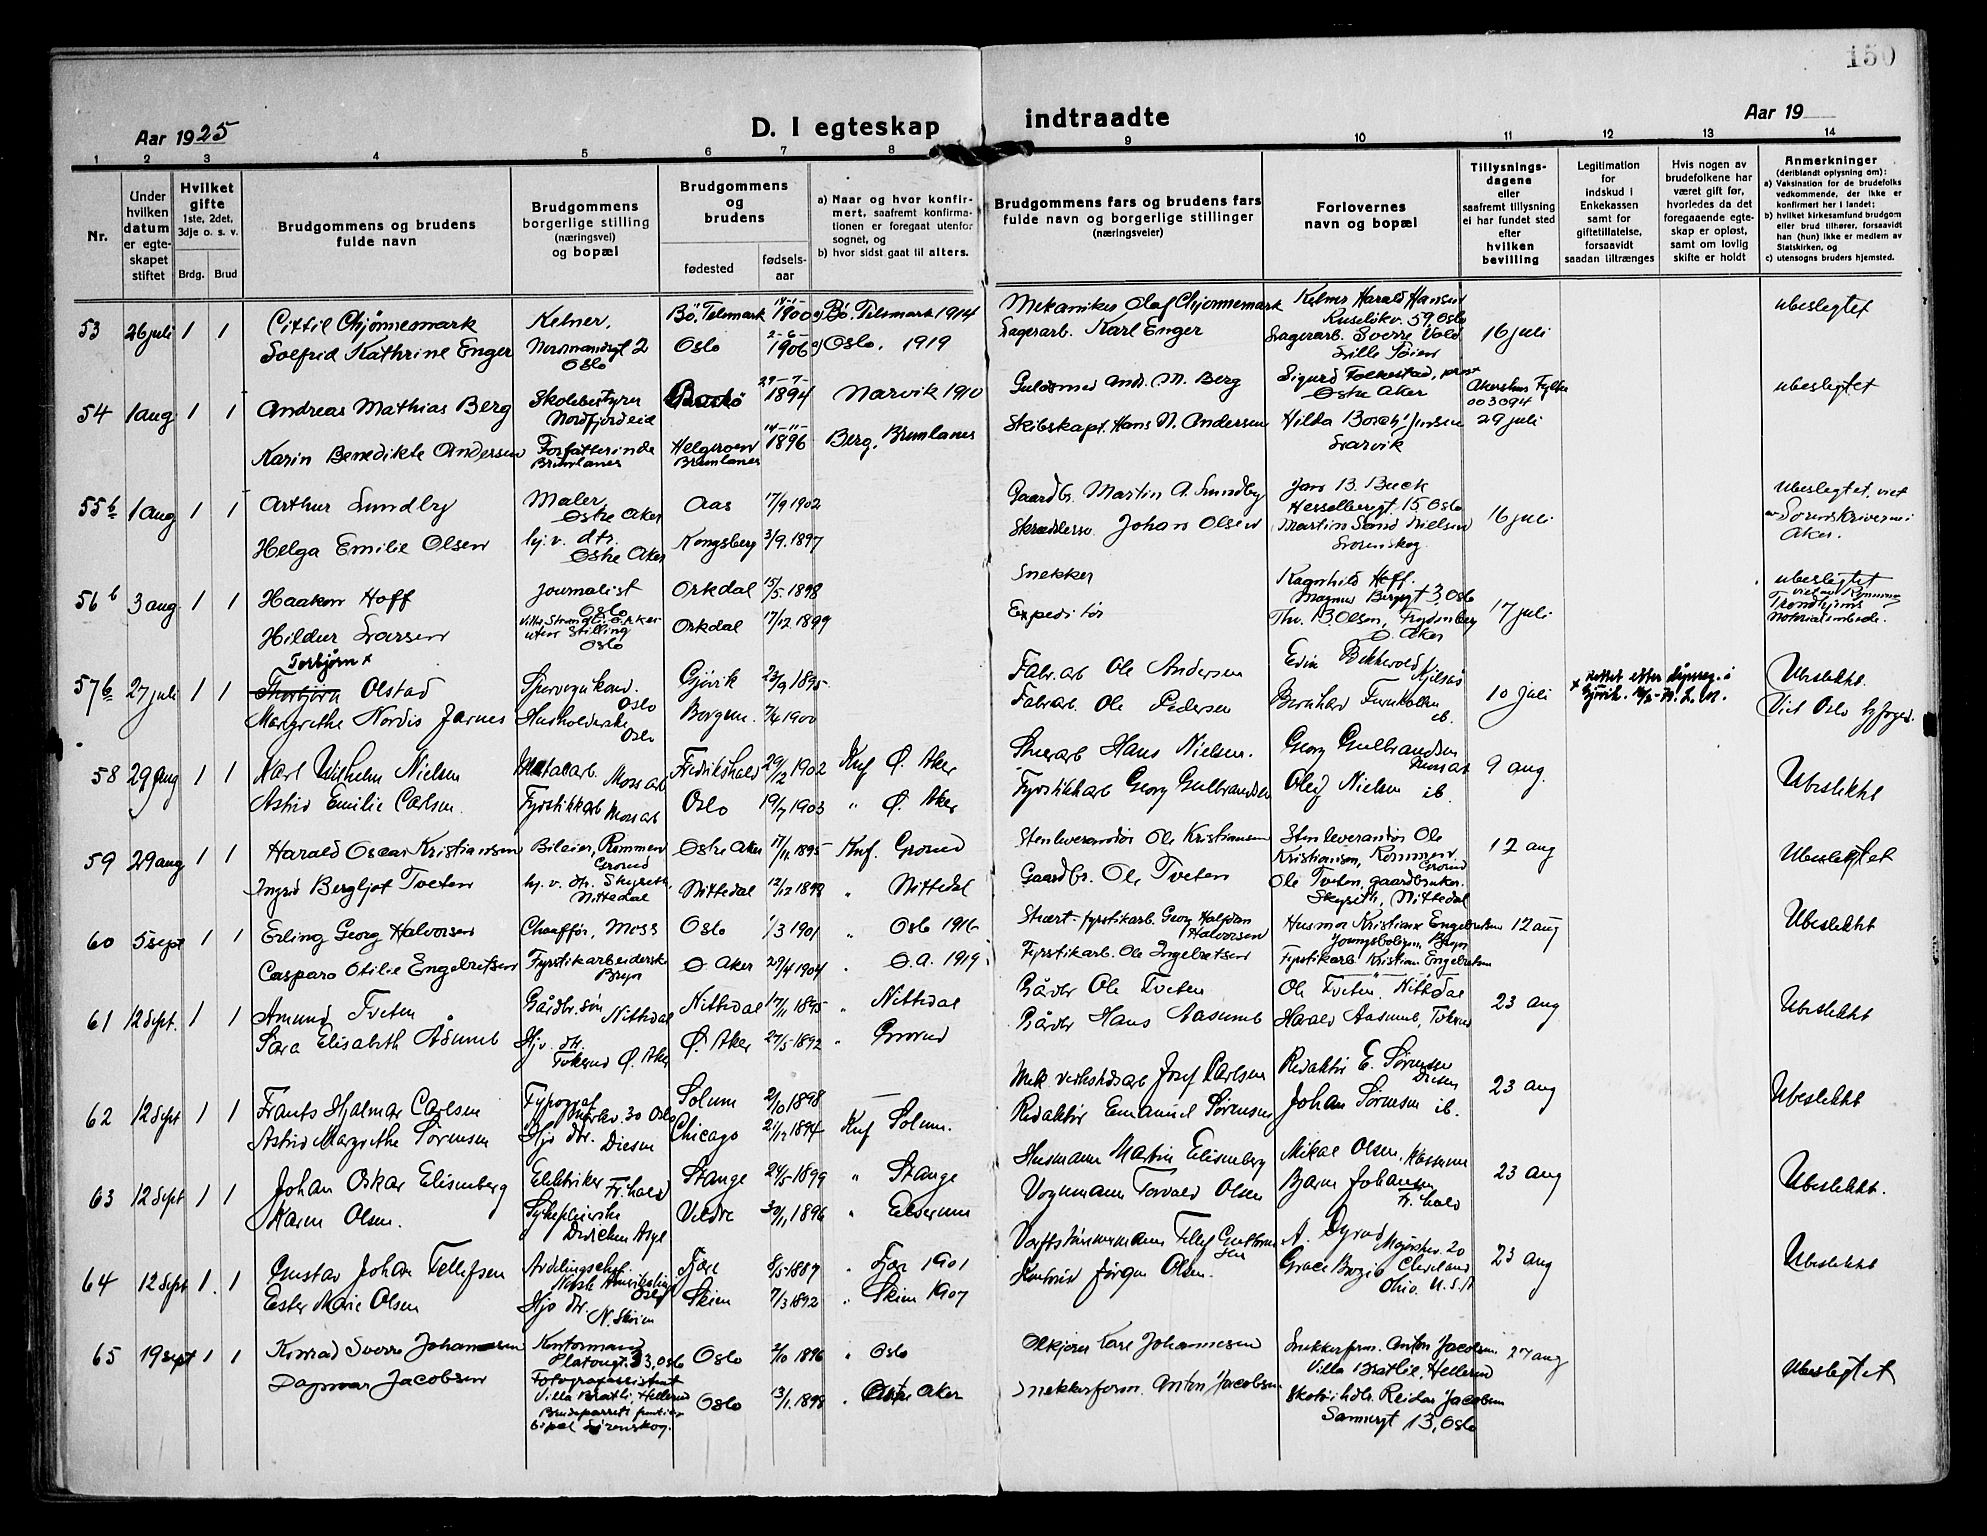 150
Aar 1925
D. I egteskap indtraadte
Aar 19
1 2 3 4 5 6 7 8 9 10 11 12 13 14
Nr.
Under hvilken datum er egteskapet stiftet
Hvilket gifte 1ste, 2det, 3dje o. s. v.
Brdg. Brud
Brudgommens og brudens fulde navn
Brudgommens borgerlige stilling (næringsvei) og bopæl
Brudgommens og brudens
fødested
fødselsaar
a) Naar og hvor konfirmert, saafremt konfirmationen er foregaat utenfor sognet, og
b) hvor sidst gaat til alters.
Brudgommens fars og brudens fars fulde navn og borgerlige stillinger (næringsveier)
Forlovernes navn og bopæl
Tillysningsdagene eller saafremt tillysning ei har fundet sted efter hvilken bevilling
Legitimation for indskud i Enkekassen samt for giftetillatelse, forsaavidt saadan tiltrænges
Hvis nogen av brudefolkene har været gift før, hvorledes da det foregaaende egteskap er opløst, samt om lovlig skifte er holdt
Anmerkninger (deriblandt oplysning om):
a) Vaksination for de brudefolks vedkommende, der ikke er konfirmert her i landet;
b) hvilket kirkesamfund brudgom eller brud tilhører, forsaavidt han (hun) ikke er medlem av Statskirken, og
c) utensogns bruders hjemsted.
53 26 juli 1 1 Kittil Gjønnesmark Kelner, Bø. Telemark 14-1-1900 a) Bø. Telemark 1914 Mekaniker Olaf Gjønnemark Kelner Harald Hansen Ruseløkv. 59, Oslo 16 juli ubeslegtet
Solfrid Kathrine Enger Normannsgt 2 Oslo Oslo 2-6-1906 a) Oslo. 1919 Lagerarb. Karl Enger Lagerarb. Sverre Vold Lille Tøien
54 1 aug 1 1 Andreas Mathias Berg Skolebestyrer Nordfjordeid Bodø 29-7-1894 Narvik 1910 Guldsmed And. M. Berg Sigurd Folkestad, prest Østre Aker Akershus Fylke 003094 29 juli ubeslegtet
Karin Benedikte Andersen Forfatterinde Brunlanes Helgeroen Brunlanes 14-11-1896 Berg, Brunlanes Skibskapt. Hans N. Andersen Hilda Borch Jensen Larvik
55 b 1 aug 1 1 Arthur Lundby Maler Østre Aker Aas 17/9 1902 Gaardbr. Martin A. Lundby Jens B. Buck Hesselbergt. 15 Oslo 16 juli Ubeslegtet, viet av Sorenskriveren i Aker.
Helga Emilie Olsen hj. v. dtr. Østre Aker Kongsberg 3/9. 1897 Skrædderm. Johan Olsen Martin Sand Nielsen Lørenskog
56 b 3 aug 1 1 Haakon Hoff Journalist Oslo Orkdal 15/5 1898 Snekker Ragnhild Hoff. Magnus Bergsgt 3, Oslo 17 juli ubeslegtet
Hildur Larsen uten Stilling Oslo Orkdal 17/12 1899 Expeditør Thv. B. Olsen, Frydenberg Ø. Aker Trondhjems Notorialembede.
57 b 27 juli 1 1 Torbjørn x Thorbjørn Olstad Sporveiskond. Oslo Gjøvik 23/9 1895 Fabr. arb Ole Andersen Edin Bekkevold Kjelsås 10 juli x rettet efter dåpsreg. i Gjøvik. Ubeslekt.
Margrethe Nordis Jarnes Husholderske Oslo Borgen 7/4 1900 Fabrarb. Ole Pedersen Bernhard Furuholmen ib. Viet Oslo byfoged.
58 29 aug 1 1 Karl Wilhelm Nielsen Metalarb. Mosseb Fredrikshald 29/12 1902 Knf Ø. Aker Stuerarb Hans Nielsen. Georg Gulbrandsen 9 aug. Ubeslekkt
Astrid Emilie Carlsen. Fyrstikkarb Oslo 19/7 1903 " Ø. Aker Fyrstikkarb Georg Gulbrandsen Oleif Nielsen ib.
59 29 aug 1 1 Harald Oscar Kristiansen Bileier, Rommen Grorud Østre Aker 17/11 1895 Knf. Grorud Stenleverandør Ole Kristiansen Stenleverandør Ole Kristiansen, Rommen Grorud 12 aug Ubeslegtet
Ingrid Bergljot Tveten hj. v. dtr. Skyseth Nittedal Nittedal 12/12 1899 " Nittedal Gaardbr. Ole Tveten Ole Tveten, gaardbruker. Skyseth, Nittedal
60 5 sept 1 1 Erling Georg Halvorsen Chauffør, Moss Oslo 1/3 1901 " Oslo 1916 Georg Halfdan Halvorsen Husmor Kristiane Engebretsen Bryn 12 aug Ubeslekkt
Caspara Otilie Engebretsen Fyrstikarbeiderske Bryn Ø Aker 29/4 1904 " Ø. A. 1919. Fyrstikarb. Ole Ingebretsen Fyrstikarb Kristian Engebretsen
61 12 sept. 1 1 Amund Tveten Gårdbr. søn Nittedal Nittedal 17/11 1895 " Nittedal Gårdbr Ole Tveten Ole Tveten. Nittedal 23 aug Ubeslekkt
Sara Elisabeth Åsumb Hj. v. dtr. Tokerud Ø. Aker Ø. Aker 27/5 1892 " Grorud Gårdbr Hans Aasumb Harald Aasumb, Tokerud
62 12 sept 1 1 Frants Hjalmar Carlsen Typograf 30 Oslo Solum 2/10 1898 — Mek verkstedsarb Josef Carlsen Redaktør E. Sørensen Disen 23 aug Ubeslekkt
Astrid Margrethe Sørensen Hjv dtr. Disen Chicago 21/12 1894 Knf Solum. Redaktør Emanuel Sørensen Johan Sørensen ib.
63 12 sept 1 1 Johan Oskar Elisenberg Elektriker Fr. hald Stange 24/5 1899 " Stange Husmann Martin Elisenberg Mikal Olsen 23 aug Ubeslekkt.
Karen Olsen. Sykepleierske Vildre 30/11 1896 " Elverum Vognmann Torvald Olsen Bjarne Johansen Fr. hald
64 12 sept 1 1 Gustav Johan Tellefsen Avdelingschef. Oslo Fjære 8/5 1887 " Fjære 1901 A. Dyrud 20 23 aug Ubeslekkt
Ester Marie Olsen Hjv dtr. N. Skøien Skien 7/3 1892 " Skien 1907 Jørgen Olsen. Grace Cleveland Ohio. U.S.A
65 19 sept 1 1 Konrad Sverre Johannessen Kontormand Platougt. 33, Oslo Oslo 2/10 1896 " Oslo Ølkjører Karl Johannesen Snekkerform. Anton Jacobsen. Villa Bratlie, Hellerud 27 aug Ubeslegtet
Dagmar Jacobsen Fotografassistent Villa Bratli, Hellerud Brudeparrets fremtidige bopæl Lørenskog. Oslo 13/1. 1898 " Østre Aker Snekkerform. Anton Jacobsen Skotøihdlr. Reidar Jacobsen Sannergt 13, Oslo